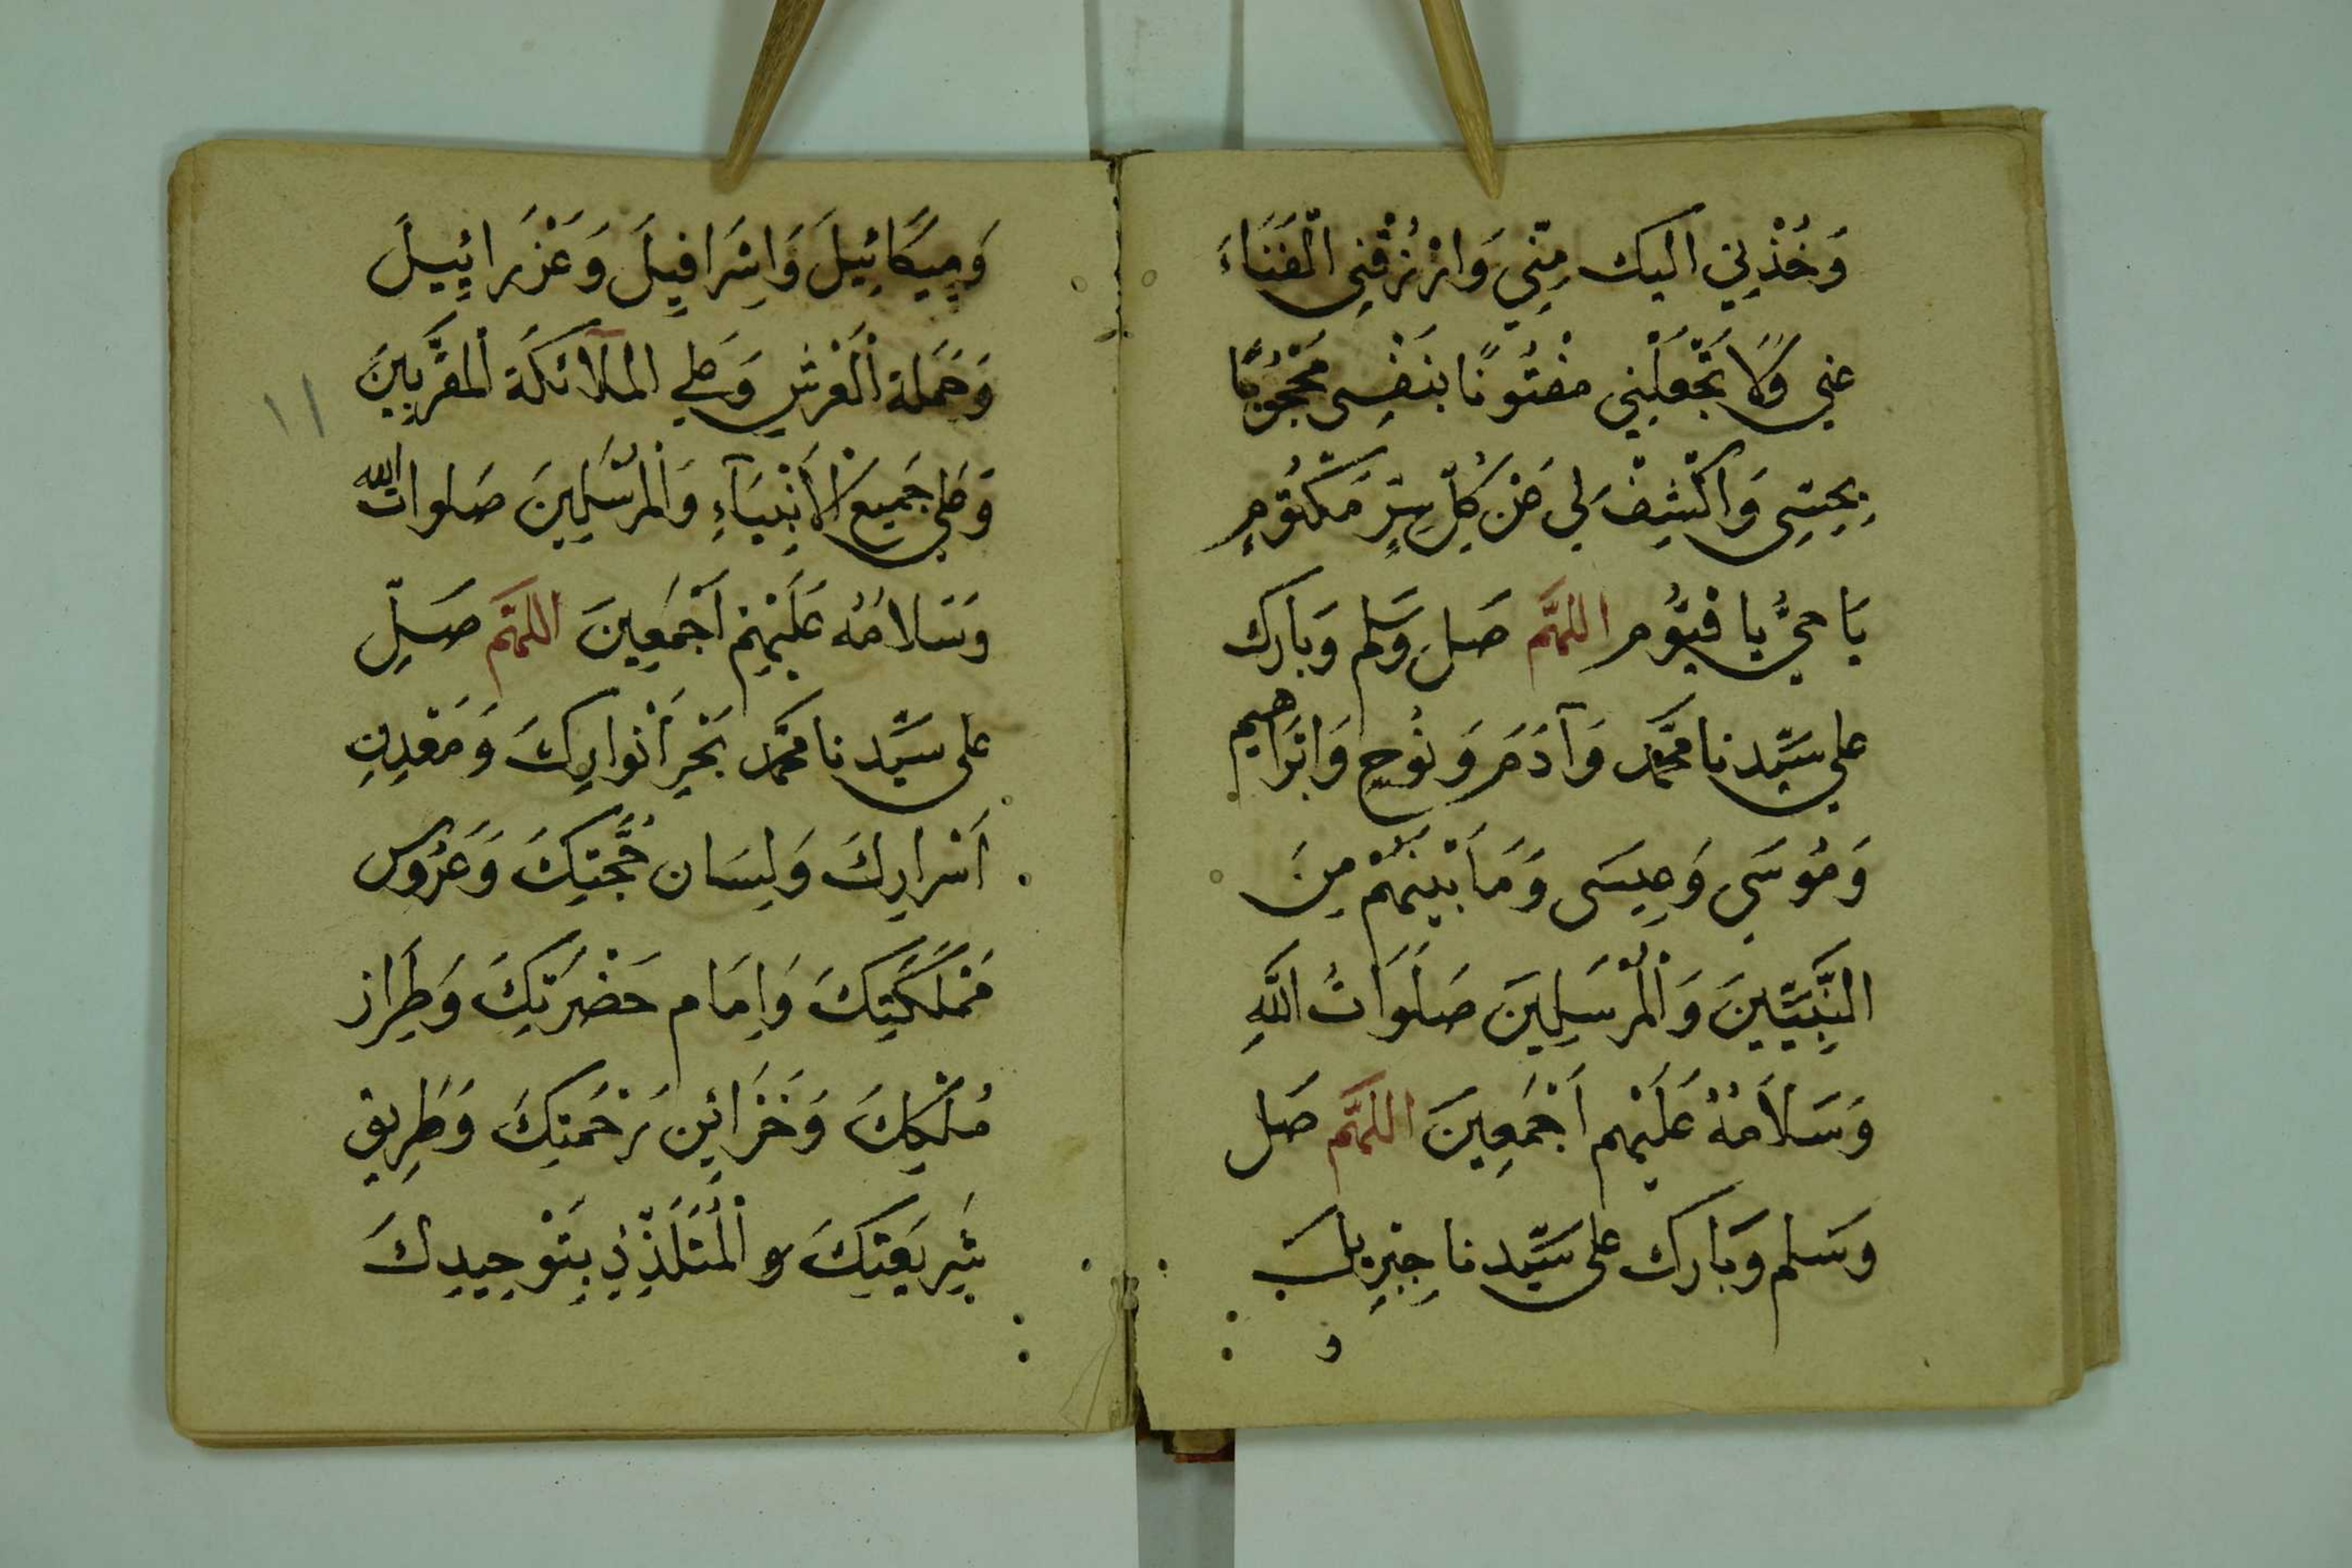 وَخُذْنِي اليك مِنِّي وَارْزُقْنِي الْفَنَاءَ
عني وَلَا تَجْعَلْنِي مفْتُونًا بنَفْسِي مَحْجُوبًا
بِحِسِّي وَاكْشِفْ لِي عَنْ كُلِّ سِرٍّ مَكْتُومٍ
يَا حَيُّ يا قَيُّوم اللهُمَّ صَلِ وَسَلم وَبَارك
على سَيِّدنا محَّمد وَآدَمَ وَنُوحٍ وَابْرَاهيم
وَمُوسَى وَعِيسَى وَمَا بَيْنَهُمْ مِنَ
النَّبِيِّينَ وَالْمُرْسَلِينَ صَلَوَاتُ اللَّهِ
وَسَلَامُهُ عَلَيْهم اَجْمَعِينَ اللهُمَّ صَل
وَسَلم وَبَارك على سَيِّدنا جِبْرِيلَ
و
وَمِيكَائِيلَ وَاِسْرَافِيلَ وَعَزْرَائِيلَ
وَحَمَلة الْعَرْشِ وَعَلى المَلآئكَة الْمُقَرَّبِينَ
وَعَلى جَمِيعِ الْأَنْبِيَآءِ وَالْمُرْسَلِينَ صَلوات الله
وَسَلامُه عَلَيْهِمْ اَجْمَعِينَ اللهُمَّ صَلِّ
على سَيِّدنا محَّمد بَحْرِ أَنْوارِكَ وَمَعْدِنِ
اَسْرارِكَ وَلِسَان حُجَّتِكَ وَعَرُوس
مَمْلَكَتِكَ وَاِمَام حَضْرَتِكَ وَطِرَاز
مُلْكِكَ وَخَزَائِن رَحْمَتِكَ وَطَرِيق
شَرِيعَتِكَ والْمُتَلَذِّذِ بِتَوْحِيدِكَ
١١